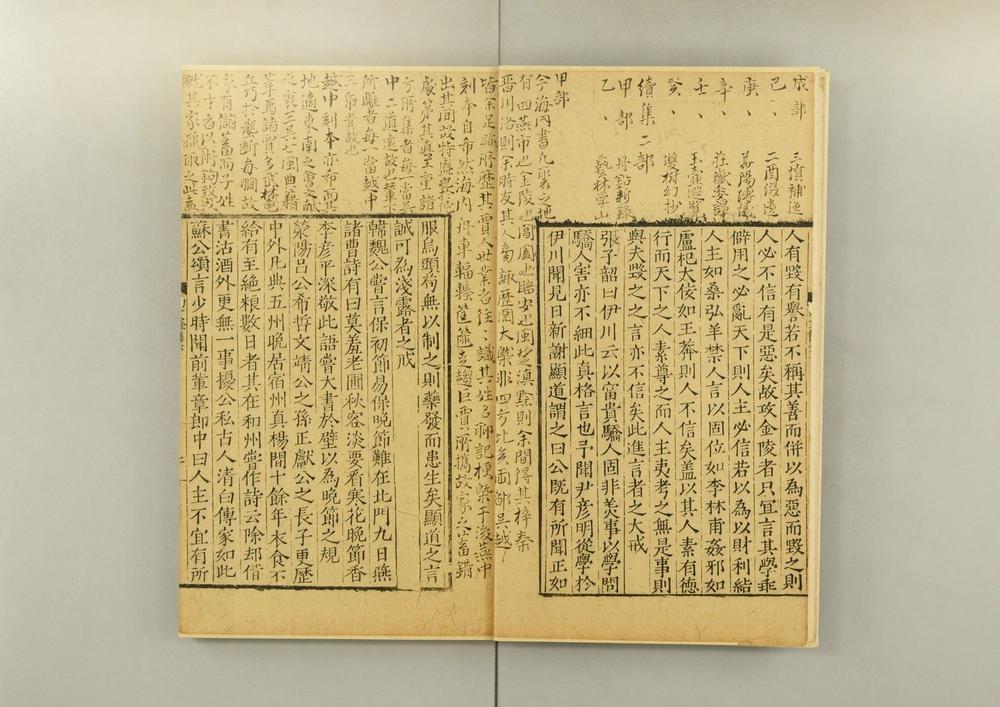 戌部 三墳補逸
己、 二酉綴遺
庚、 華陽博議
辛、 莊嶽委譚
壬、 玉壺遐覽
癸、 雙樹幻抄
續集二部
甲部 丹鉛新錄
乙、 藝林學山
甲部
今海內書凡聚之地
有四燕市也金陵也閶闔也臨安也閩楚滇黔則余間得其梓秦
晉川洛則余時友其人旁諏歷閱大槩非四方比矣兩都吳越
皆余足跡所歷其賈人世業者往、識其姓名聊記梗槩于後燕中
刻本自希然海內舟車輻輳筐篚走趨巨賈所攜故家之蓄錯
出其間故特盛於他
處第其直至重諸
方所集者每一當吳
中二道遠故也輦下
所雕者每一當越中
三帋貴故也
越中刻本亦希而其
地適東南之會文獻
之衷三吳七閩典籍
萃焉諸賈多武林龍
丘巧於壟斷每瞯故
家有儲蓄而子姓
不才者以術鉤致或
就其家獵取之此蓋
人有毀有譽若不稱其善而併以為惡而毀之則
人必不信有是惡矣故攻金陵者只宜言其學乖
僻用之必亂天下則人主必信若以為以財利結
人主如桑弘羊禁人言以固位如李林甫姦邪如
盧杞大佞如王莽則人不信矣蓋以其人素有德
行而天下之人素尊之而人主夷考之無是事則
與夫毀之之言亦不信矣此進言者之大戒
張子韶曰伊川云以富貴驕人固非美事以學問
驕人害亦不細此真格言也予聞尹彥明從學於
伊川聞見日新謝顯道謂之曰公既有所聞正如
服烏頭苟無以制之則藥發而患生矣顯道之言
誠可為淺露者之戒
韓魏公嘗言保初節易保晚節難在北門九日燕
諸曹詩有曰莫羞老圃秋容淡要看寒花晚節香
李彥平深敬此語嘗大書於壁以為晚節之規
滎陽呂公希哲文靖公之孫正獻公之長子更歷
中外凡典五州晚居宿州真楊間十餘年衣食不
給有至絕粮數日者其在和州嘗作詩云除却借
書沽酒外更無一事擾公私古人清白傳家如此
蘇公頌言少時聞前輩章郎中曰人主不宜有所